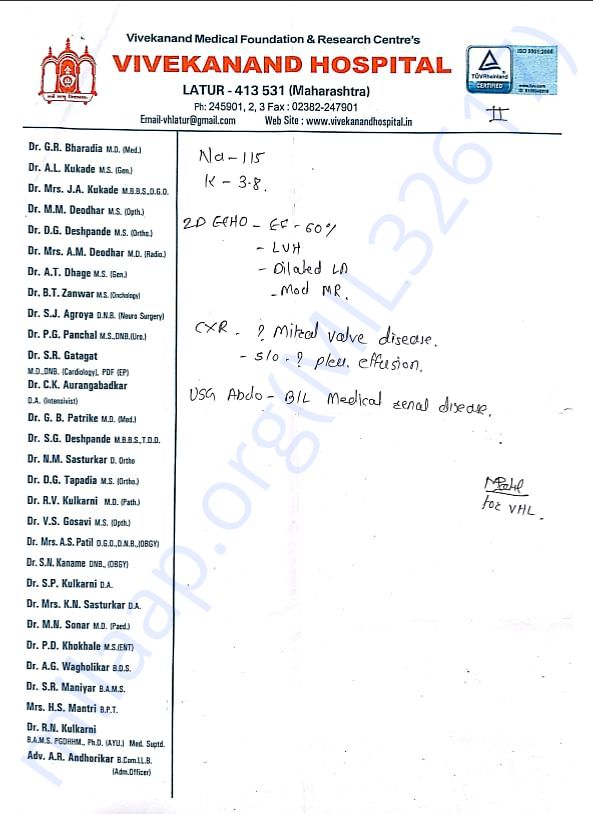 Vivekanand Medical Foundation & Research Centre's
VIVEKANAND HOSPITAL
LATUR - 413 531 (Maharashtra)
Ph: 245901, 2, 3 Fax : 02382-247901
Email-vhlatur@gmail.com Web Site : www.vivekanandhospital.in
TÜVRheinland
CERTIFIED
ISO 9001:2008
II
Dr. G.R. Bharadia M.D. (Med.)
Dr. A.L. Kukade M.S. (Gen.)
Dr. Mrs. J.A. Kukade M.B.B.S.,D.G.O.
Dr. M.M. Deodhar M.S. (Opth.)
Dr. D.G. Deshpande M.S. (Ortho.)
Dr. Mrs. A.M. Deodhar M.D. (Radio.)
Dr. A.T. Dhage M.S. (Gen.)
Dr. B.T. Zanwar M.S. (Onchology)
Dr. S.J. Agroya D.N.B. (Neuro Surgery)
Dr. P.G. Panchal M.S.,DNB.(Uro.)
Dr. S.R. Gatagat
M.D.,DNB. (Cardiology), PDF (EP)
Dr. C.K. Aurangabadkar
D.A. (Intensivist)
Dr. G. B. Patrike M.D. (Med.)
Dr. S.G. Deshpande M.B.B.S.,T.D.D.
Dr. N.M. Sasturkar D. Ortho
Dr. D.G. Tapadia M.S. (Ortho.)
Dr. R.V. Kulkarni M.D. (Path.)
Dr. V.S. Gosavi M.S. (Opth.)
Dr. Mrs. A.S. Patil D.G.O.,D.N.B.,(OBGY)
Dr. S.N. Kaname DNB., (OBGY)
Dr. S.P. Kulkarni D.A.
Dr. Mrs. K.N. Sasturkar D.A.
Dr. M.N. Sonar M.D. (Paed.)
Dr. P.D. Khokhale M.S.(ENT)
Dr. A.G. Wagholikar B.D.S.
Dr. S.R. Maniyar B.A.M.S.
Mrs. H.S. Mantri B.P.T.
Dr. R.N. Kulkarni
B.A.M.S. PGDHHM., Ph.D. (AYU.) Med. Suptd.
Adv. A.R. Andhorikar B.Com.LL.B.
(Adm.Officer)
Na - 115
K - 3.8.
2D ECHO - EF - 60%
- LVH
- Dilated LA
- Mod MR.
CXR - ? Mitral valve disease.
- S/O - ? pleu. effusion.
USG Abdo - B/L Medical renal disease.
for VHL.
milaap.org(MIL32617)